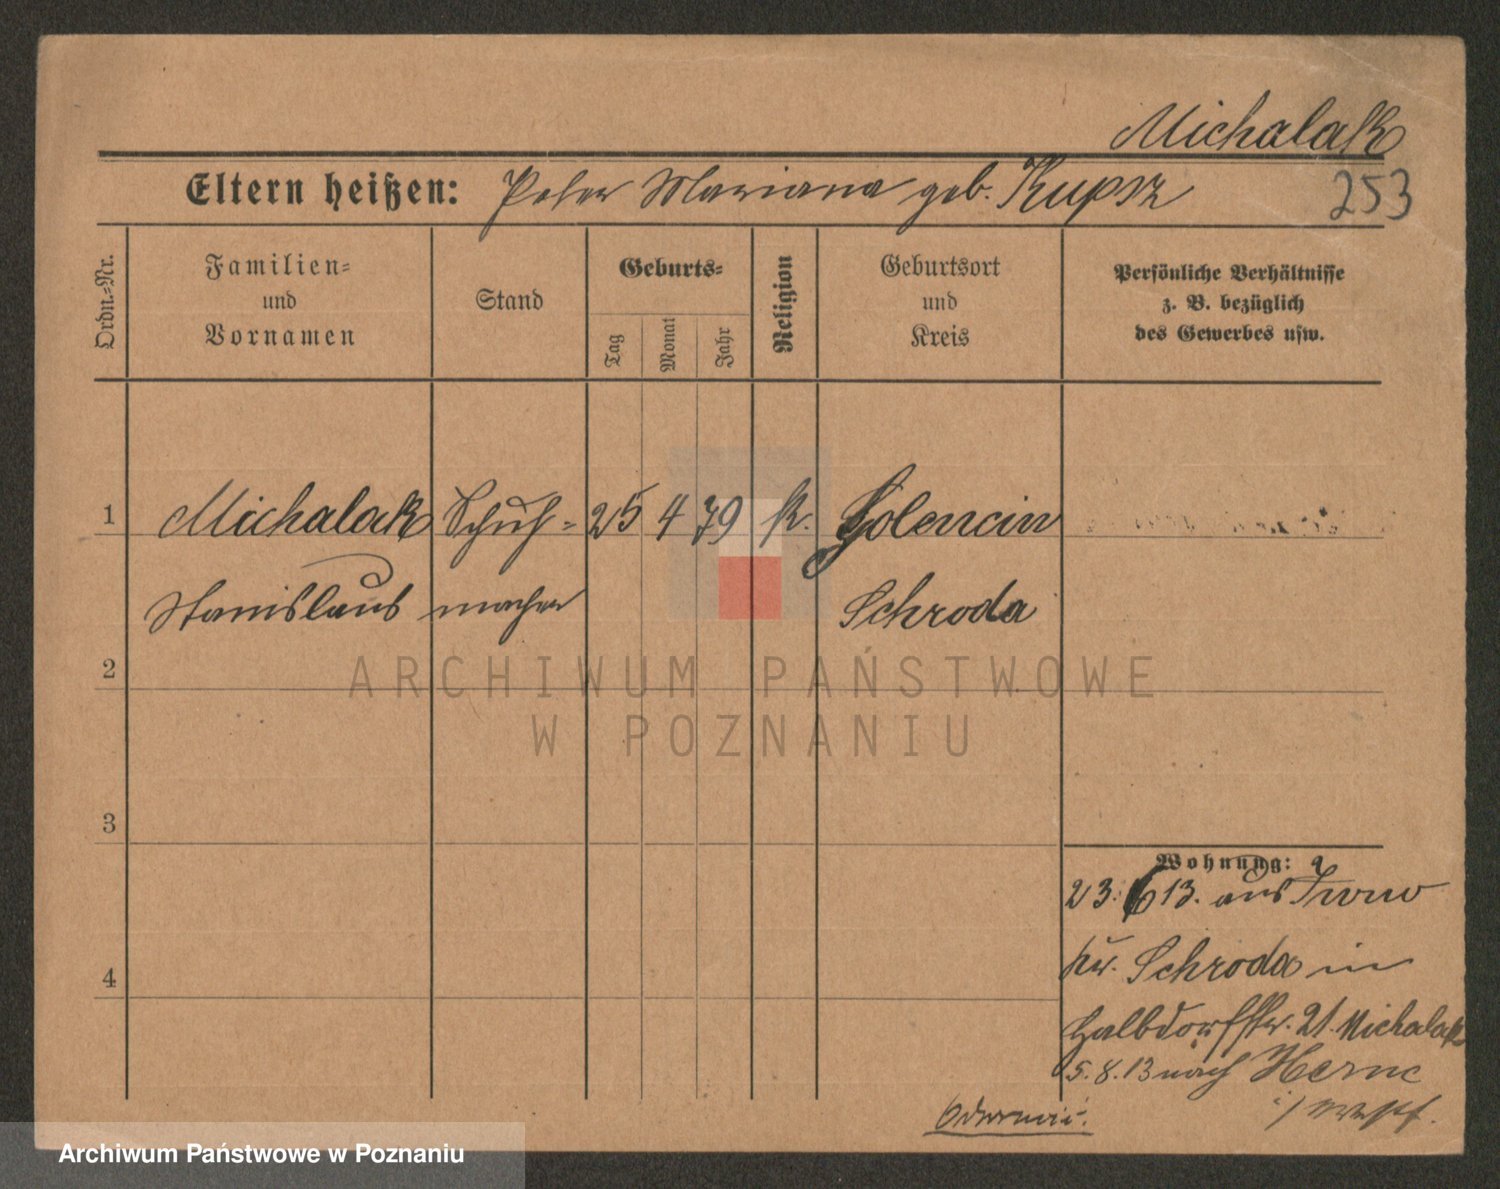 Michalak
Eltern heißen: Peter Mariana geb. Kupsz
253
Ordn.-Nr.
Familien-
und
Vornamen
Stand
Geburts-
Tag
Monat
Jahr
Religion
Geburtsort
und
Kreis
Persönliche Verhältnisse
z. B. bezüglich
des Gewerbes usw.
1 Michalak Schuh- 25 4 79 k. Golencin
Stanislaus macher Schroda
2
ARCHIWUM PAŃSTWOWE
W POZNANIU
3
Wohnung:
23.6 13. aus
Kr. Schroda in
Halbdorfstr. 21. Michalak
5.8.13 nach Herne
i/ Westf.
Archiwum Państwowe w Poznaniu